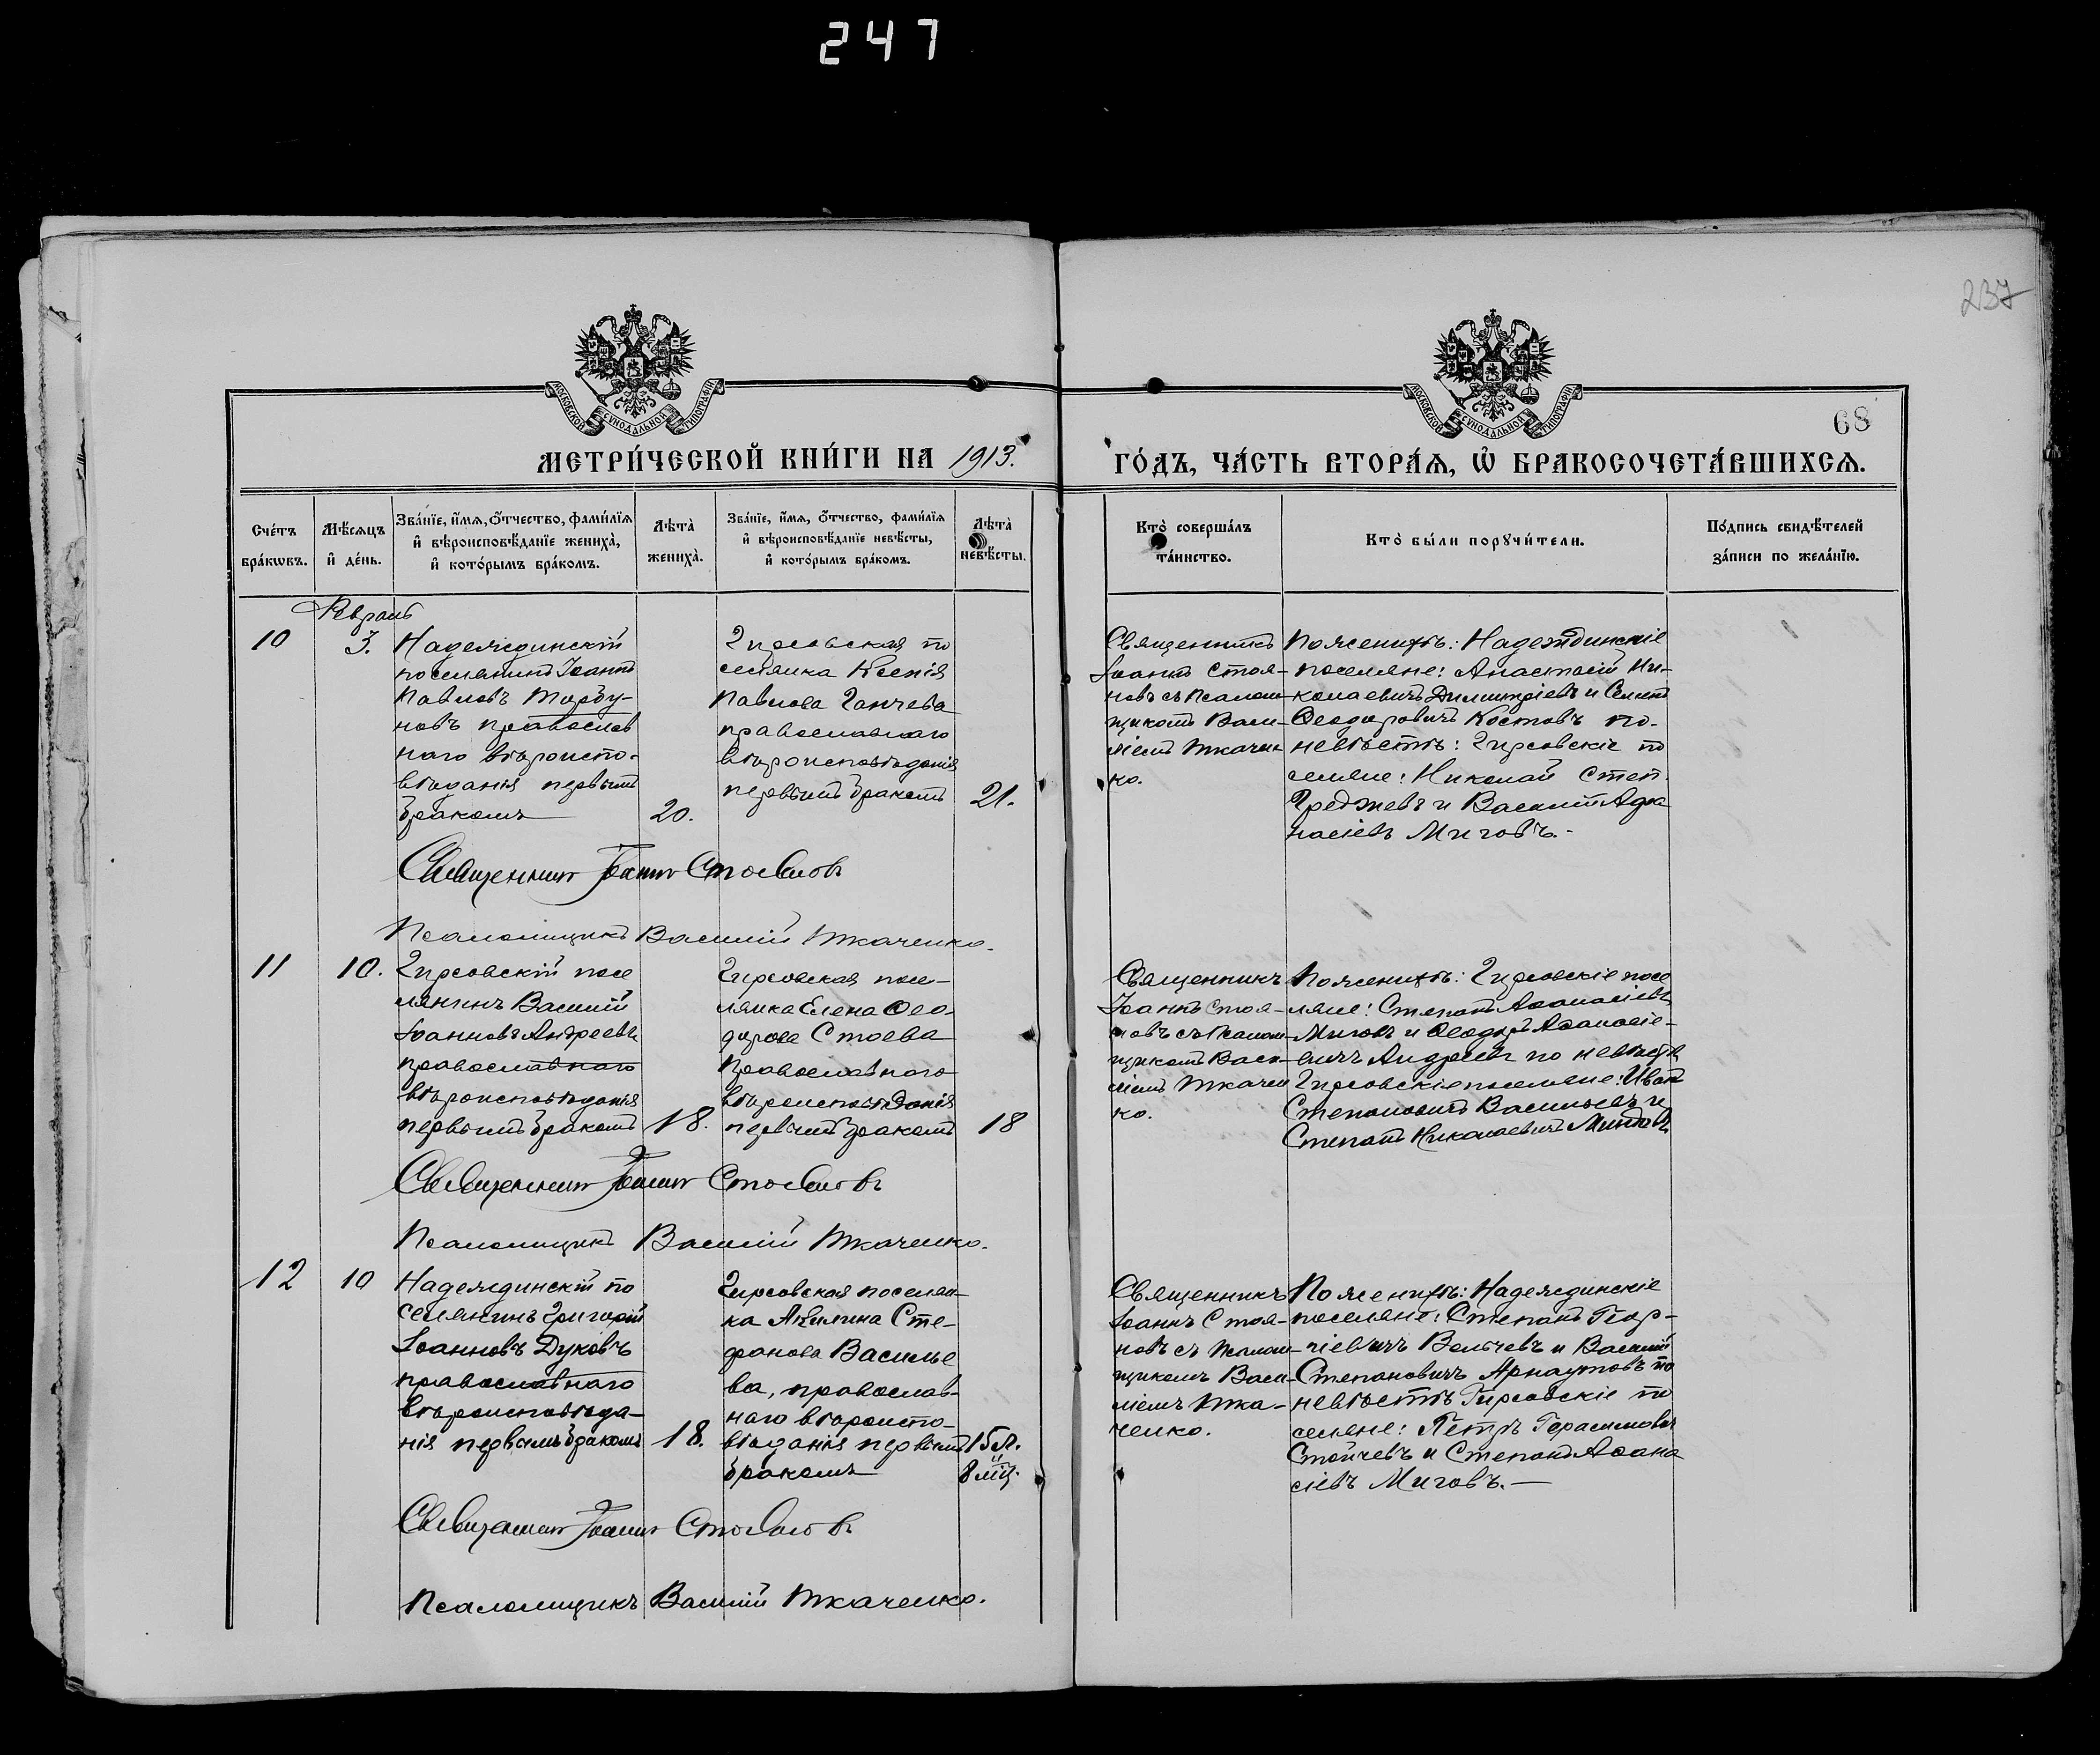 247
237
68
МЕТРИ́ЧЕСКОЙ КНИ́ГИ НА 1913.
ГО́ДЪ, ЧА́СТЬ ВТОРА́Я, Ѡ҆ БРАКОСОЧЕТА́ВШИХСЯ.
Сче́тъ
бра́кωвъ.
Мѣ́сяцъ
и҆ де́нь.
Зва́нїе, и҆́мя, ѻ҆́тчество, фами́лїя
и҆ вѣроисповѣ́данїе жениха̀,
и҆ кото́рымъ бра́комъ.
Лѣта̀
жениха̀.
Зва́нїе, и҆́мя, ѻ҆́тчество, фами́лїя
и҆ вѣроисповѣ́данїе невѣ́сты,
и҆ кото́рымъ бра́комъ.
Лѣта̀
невѣ́сты.
Кто̀ соверша́лъ
та́инство.
Кто̀ бы́ли порꙋчи́тели.
По́дпись свидѣ́телей
за́писи по жела́нїю.
Февраль
10
3.
Надеждинскій
поселянинъ Іоаннъ
Павловъ Торбу-
новъ православ
наго вѣроиспо-
вѣданія первымъ
бракомъ
20.
Гирсовская по
селянка Ксенія
Павлова Ганчева
православнаго
вѣроисповѣданія
первымъ бракомъ
21.
Священникъ
Іоаннъ Стоя-
новъ съ Псалом-
щикомъ Васи-
ліемъ Ткачен
ко.
По женихѣ: Надеждинскіе
поселяне: Анастасій Ни-
колаевичъ Димитріевъ и Семенъ
Ѳеодоровичъ Костовъ по
невѣстѣ: Гирсовскіе по
селяне: Николай Степ.
и Василій Афа
насіевъ Миговъ.-
Священникъ Іоаннъ Стояновъ
Псаломщикъ Василій Ткаченко.
11
10.
Гирсовскій посе
лянинъ Василій
Іоанновъ Андреевъ
православнаго
вѣроисповѣданія
первымъ бракомъ
18.
Гирсовская посе-
лянка Елена Ѳео-
дорова Стоева
Православнаго
вѣроисповѣданія
первымъ бракомъ
18
Священникъ
Іоаннъ Стоя-
новъ съ Псалом-
щикомъ Васи-
ліемъ Ткачен
ко.
По женихѣ: Гирсовскіе посе
ляне: Степанъ Аѳанасіевъ
Миговъ и Ѳеодоръ Аѳанасіе-
вичъ Андреевъ по невѣстѣ
Гирсовскіе поселяне: Иванъ
Степановичъ Васильевъ и
Степанъ Николаевичъ
Священникъ Іоаннъ Стояновъ
Псаломщикъ Василій Ткаченко.
12
10
Надеждинскій по
селянинъ Григорій
Іоанновъ Дуковъ
православнаго
вѣроисповѣда-
нія первымъ бракомъ
18.
Гирсовская поселян-
ка Акилина Сте-
фанова Василье
ва, православ-
наго вѣроиспо-
вѣданія первымъ
бракомъ
15 л.
и
8 мц.
Священникъ
Іоаннъ Стоя-
новъ съ Псалом-
щикомъ Васи-
ліемъ Тка-
ченко.
По женихѣ: Надеждинскіе
поселяне: Степанъ Геор-
гіевичъ Велчевъ и Василій
Степановичъ Арнаутовъ по
невѣстѣ Гирсовскіе по
селяне: Петръ Герасимовъ
Стойчевъ и Степанъ Аѳана
сіевъ Миговъ.-
Священникъ Іоаннъ Стояновъ
Псаломщикъ Василій Ткаченко.